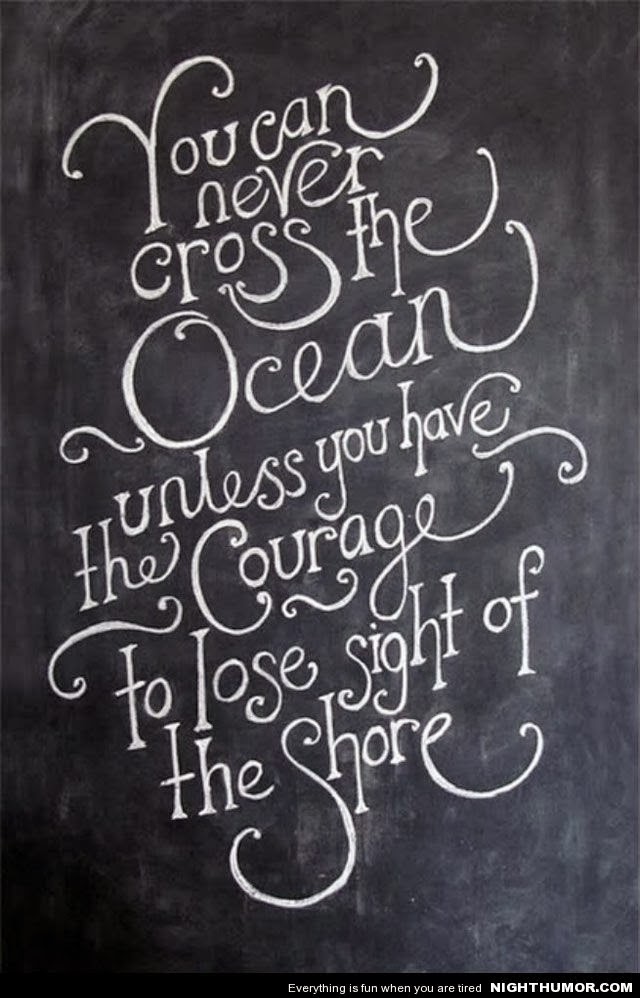 You can
never
cross the
Ocean
unless you have
the Courage
to lose sight of
the Shore
Everything is fun when you are tired NIGHTHUMOR.COM